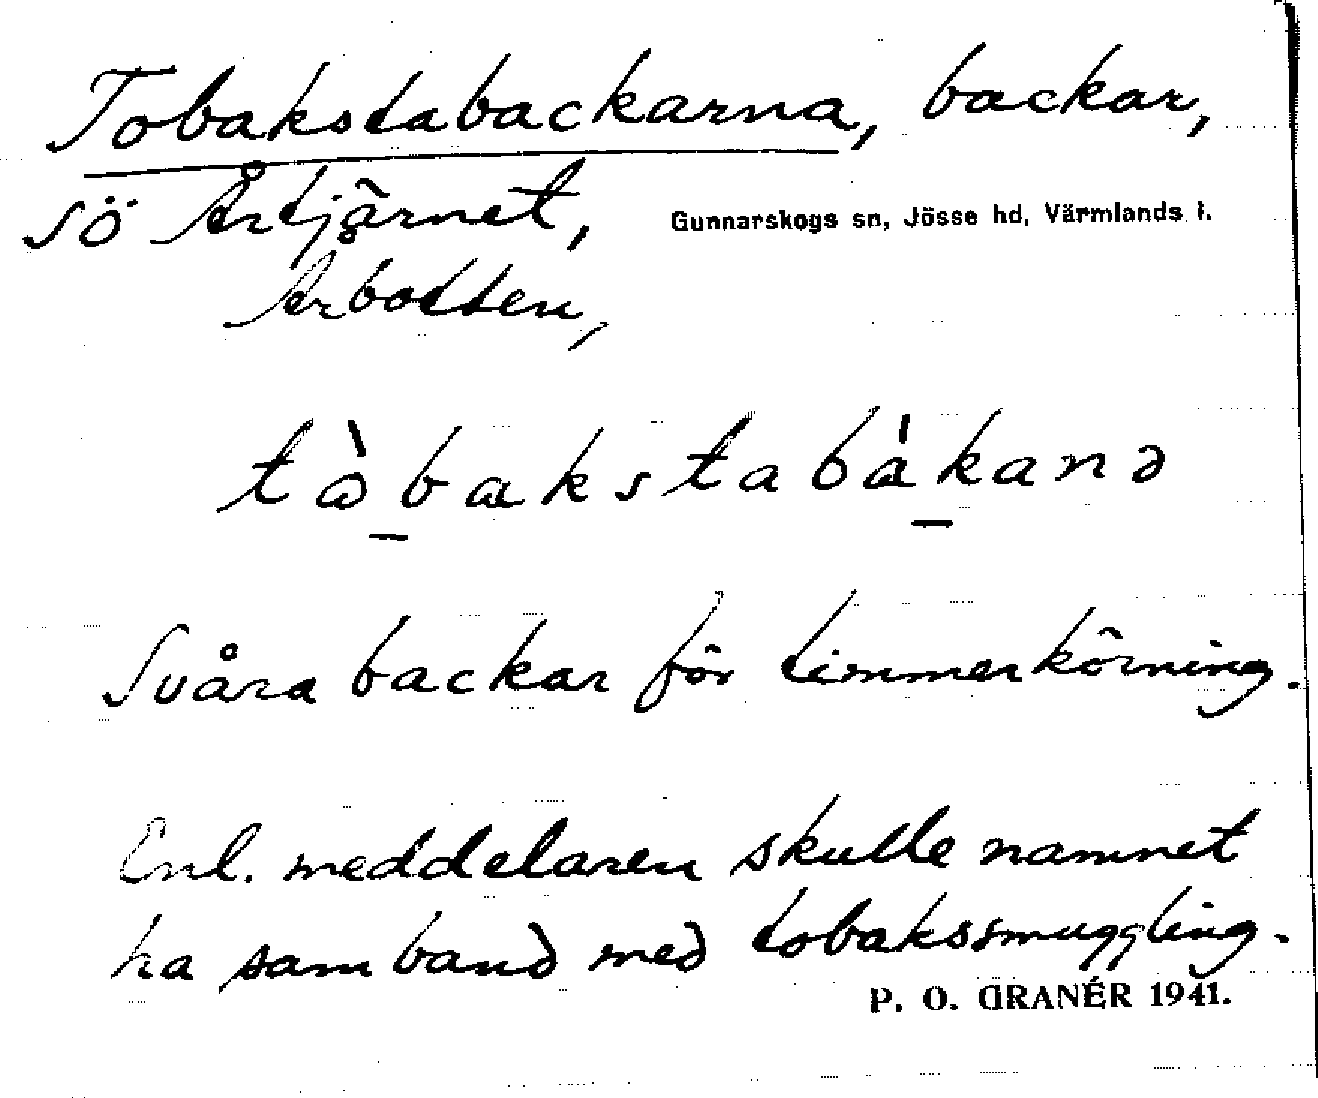 Tobakstabackarna, backar,
sö Årtjärnet,
Gunnarskogs sn, Jösse hd, Värmlands l.
Årbotten,
tòbakstabákanə
Svåra backar för timmerkörning.
Enl. meddelaren skulle namnet
ha samband med tobakssmuggling.
P. O. GRANÉR 1941.